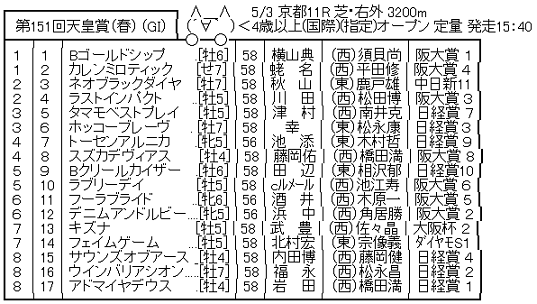 第151回天皇賞(春) (GI) 5/3 京都11R 芝・右外 3200m
<4歳以上(国際)(指定)オープン 定量 発走15:40
1 1 Bゴールドシップ [牡6] 58 横山典 (西)須貝尚 阪大賞 1
1 2 カレンミロティック [せ7] 58 蛯名 (西)平田修 阪大賞 4
2 3 ネオブラックダイヤ [牡7] 58 秋山 (東)鹿戸雄 中日新11
2 4 ラストインパクト [牡5] 58 川田 (西)松田博 阪大賞 3
3 5 タマモベストプレイ [牡5] 58 津村 (西)南井克 日経賞 7
3 6 ホッコーブレーヴ [牡7] 58 幸 (東)松永康 日経賞 3
4 7 トーセンアルニカ [牝5] 56 池添 (東)木村哲 日経賞 9
4 8 スズカデヴィアス [牡4] 58 藤岡佑 (西)橋田満 阪大賞 8
5 9 Bクリールカイザー [牡6] 58 田辺 (東)相沢郁 日経賞10
5 10 ラブリーデイ [牡5] 58 cルメール (西)池江寿 阪大賞 6
6 11 フーラブライド [牝6] 56 酒井 (西)木原一 阪大賞 5
6 12 デニムアンドルビー [牝5] 56 浜中 (西)角居勝 阪大賞 2
7 13 キズナ [牡5] 58 武豊 (西)佐々晶 大阪杯 2
7 14 フェイムゲーム [牡5] 58 北村宏 (東)宗像義 ダイヤモS1
8 15 サウンズオブアース [牡4] 58 内田博 (西)藤岡健 日経賞 4
8 16 ウインバリアシオン [牡7] 58 福永 (西)松永昌 日経賞 2
8 17 アドマイヤデウス [牡4] 58 岩田 (西)橋田満 日経賞 1